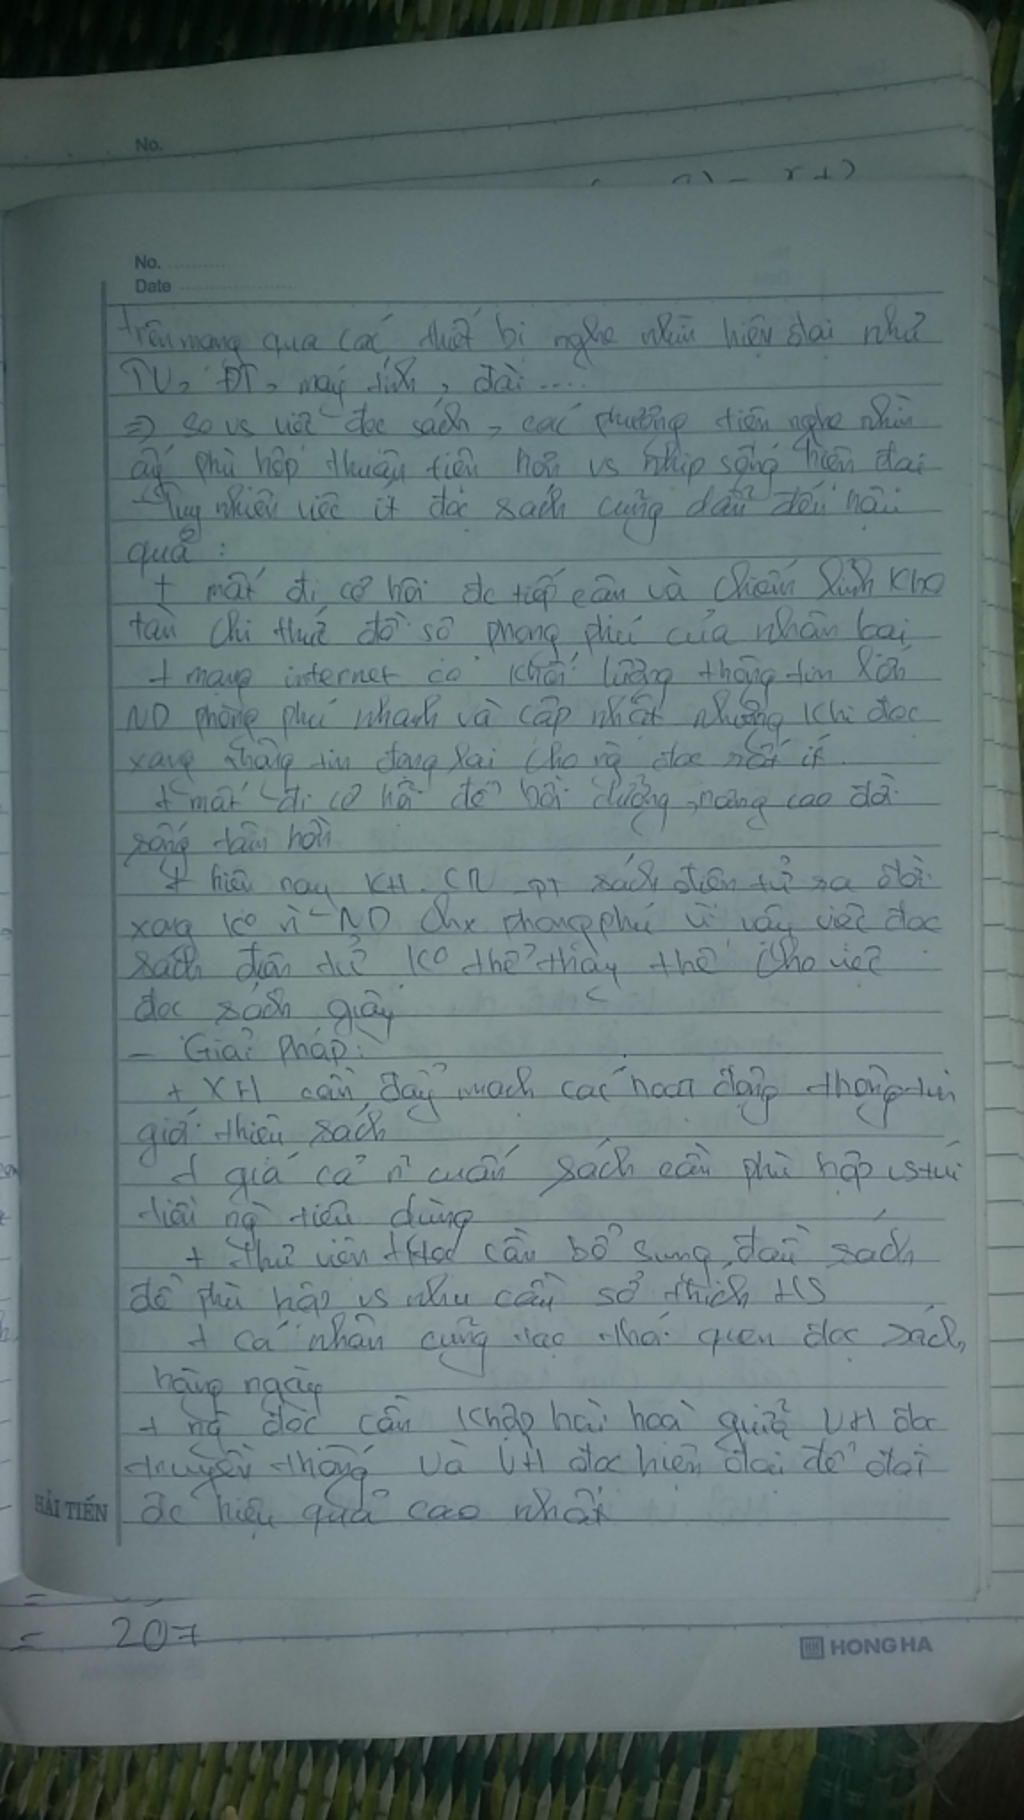 No.
No.
Date
trên mạng qua các thiết bị nghe nhìn hiện đại như
TV, ĐT, máy tính, đài ....
=> So vs việc đọc sách, các phương tiện nghe nhìn
ấy phù hợp thuận tiện hơn vs nhịp sống hiện đại
- Tuy nhiên việc ít đọc sách cũng dẫn đến hậu
quả :
+ mất đi cơ hội đc tiếp cận và chiếm lĩnh kho
tàn chi thức đồ sộ phong phú của nhân loại
+ mạng internet có khối lượng thông tin lớn
ND phong phú nhanh và cập nhật nhưng khi đọc
xong thông tin đọng lại cho ng đọc rất ít.
+ mất đi cơ hội để bồi dưỡng, nâng cao đời
sống tâm hồn
+ hiện nay KH. CN PT sách điện tử ra đời
xong ko vì ND chx phong phú vì vậy việc đọc
sách điện tử ko thể thay thế cho việc
đọc sách giấy
- Giải pháp:
+ XH cần đẩy mạch các hoạt động thông tin
giới thiệu sách
+ giá cả n cuấn sách cần phù hợp vs túi
tiền ng tiêu dùng
+ Thư viện cần bổ sung đầu sách
để phù hợp vs nhu cầu sở thích HS
+ Cá nhân cũng tạo thói quen đọc sách,
hằng ngày
+ ng đọc cần khợp hài hoà giữa VH đọc
truyền thống và VH đọc hiện đại để đạt
đc hiệu quả cao nhất
HẢI TIẾN
=
= 207
HONG HA